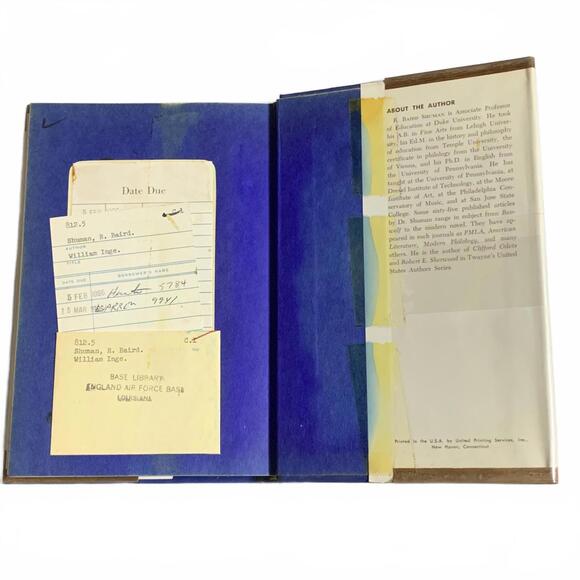 Date Due
812.5 c.2
Shuman, R. Baird.
AUTHOR
William Inge.
TITLE
DATE DUE BORROWER'S NAME
5 FEB 5784
15 MAR WARREN 9941
812.5 c.2
Shuman, R. Baird.
William Inge.
BASE LIBRARY
ENGLAND AIR FORCE BASE
LOUISIANA
ABOUT THE AUTHOR
R. BAIRD SHUMAN is Associate Professor
of Education at Duke University. He took
his A.B. in Fine Arts from Lehigh Univer-
sity, his Ed.M. in the history and philosophy
of education from Temple University, the
certificate in philology from the University
of Vienna, and his Ph.D. in English from
the University of Pennsylvania. He has
taught at the University of Pennsylvania, at
Drexel Institute of Technology, at the Moore
Institute of Art, at the Philadelphia Con-
servatory of Music, and at San Jose State
College. Some sixty-five published articles
by Dr. Shuman range in subject from Beo-
wulf to the modern novel. They have ap-
peared in such journals as PMLA, American
Literature, Modern Philology, and many
others. He is the author of Clifford Odets
and Robert E. Sherwood in Twayne's United
States Authors Series.
Printed in the U.S.A. by United Printing Services, Inc.,
New Haven, Connecticut